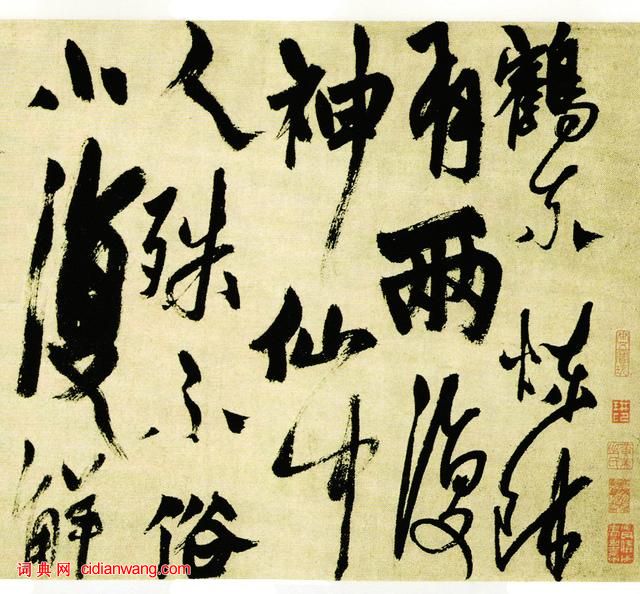 鶴東煉師
有兩復
神仙中
人殊不俗
小復解
词典网 cidianwang.com